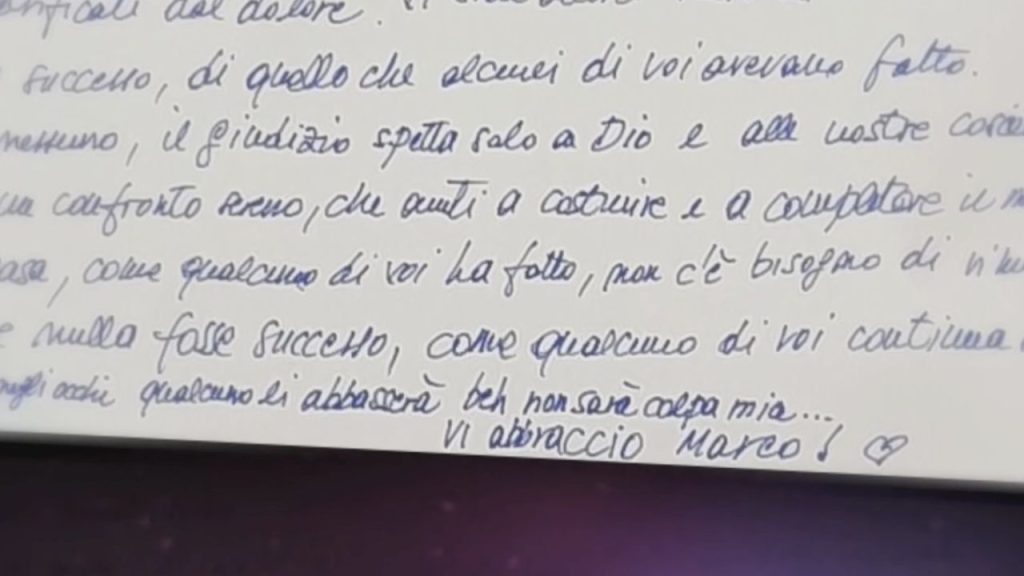 dal dolore.
successo, di quello che alcuni di voi avevano fatto.
nessuno, il giudizio spetta solo a Dio e alle nostre
un confronto sereno, che aiuti a costruire e a compatare il
casa, come qualcuno di voi ha fatto, non c'è bisogno di
e nulla fosse successo, come qualcuno di voi continua
negli occhi qualcuno li abbasserà beh non sarà colpa mia...
Vi abbraccio Marco! ♡